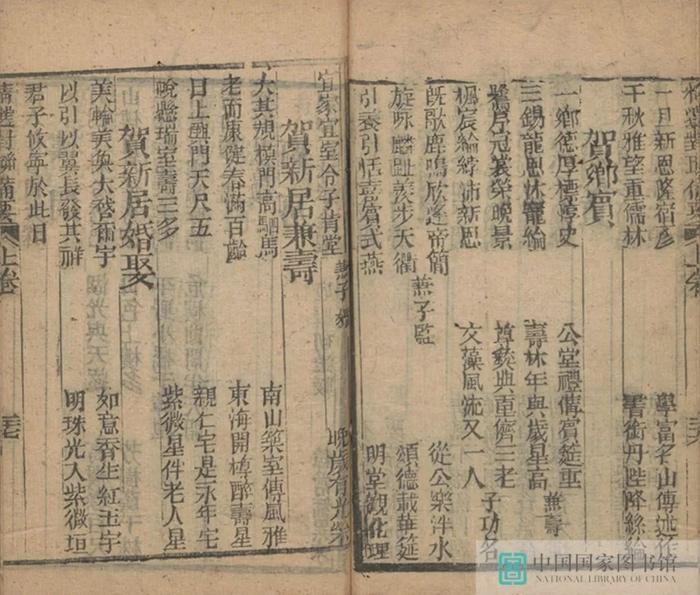 一日新恩降宿彥　學富名山傳述作
千秋雅望重儒林　書銜丹陛降絲綸
賀鄉賓
一鄉德厚標史　公堂禮備賓筵重
三錫龍恩休寵綸　壽林年與歲星高　兼壽
鷺序冠裳榮晚景　尊彝典重儕三老
楓宸綸綍沛新恩　文藻風流又一人　子功名
既歌鹿鳴欣逢帝簡　兼子監　從公樂泮水
旋咏麟趾羨步天衢　頌德載華筵
引養引恬嘉賓式燕　明堂觀化理
宜家宜室令子肯堂　兼子　晚歲有光
賀新居兼壽
大其規模門高駟馬　南山築室傳風雅
老而康健春滿百齡　東海開樽醉壽星
日上輿門天尺五　親仁宅是永年宅
晚懸瑞室壽三多　紫微星伴老人星
賀新居婚娶
美輪美奐大啓爾宇　如意香生紅玉宇
以引以翼長發其祥　明珠光入紫微垣
君子攸寧於此日
上卷　三七
中国国家图书馆
NATIONAL LIBRARY OF CHINA